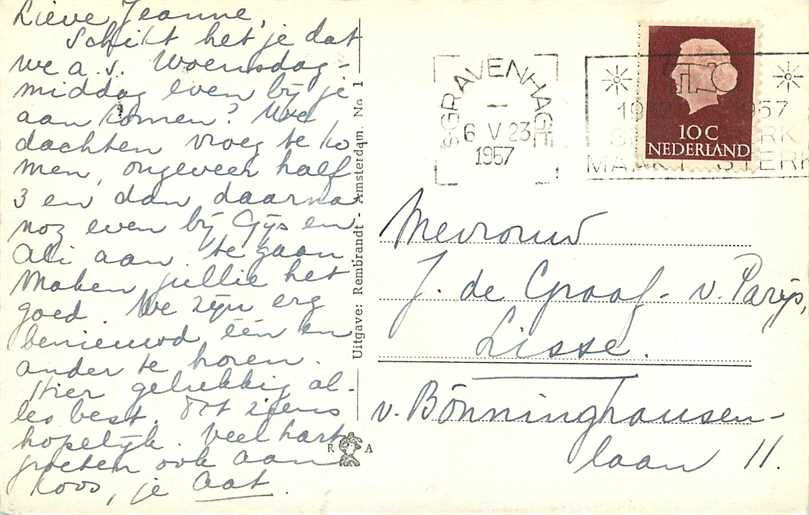 Lieve Jeanne,
Schikt het je dat
we a.s. Woensdag-
middag even bij je
aan komen? We
dachten vroeg te ko
men, ongeveer half
3 en dan daarna
nog even bij Gijs en
Ali aan te gaan.
Maken jullie het
goed. We zijn erg
benieuwd één en
ander te horen.
Hier gelukkig al-
les best. Tot ziens
hopelijk. Veel hart.
groeten ook aan
Koos, je Aat.
Uitgave: Rembrandt - Amsterdam. No 1
R A
'SGRAVENHAGE
6 V 23
1957
1957
MAAKT STERK
10 C
NEDERLAND
Mevrouw
J. de Graaf - v. Parijs,
Lisse.
v. Bönninghausen-
laan 11.